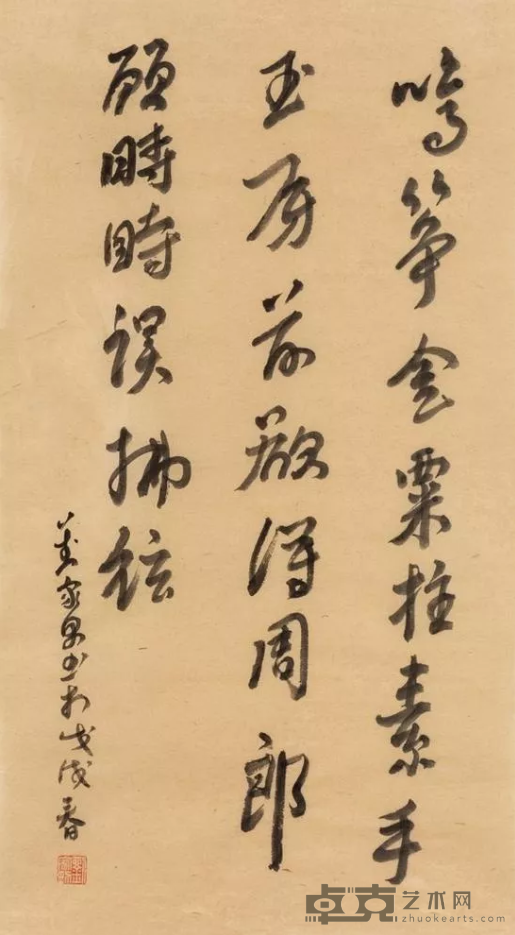 鳴筝金粟柱素手
玉房前欲得周郎
顧時時误拂弦
家 书於戊戌春
卓克艺术网
zhuokearts.com